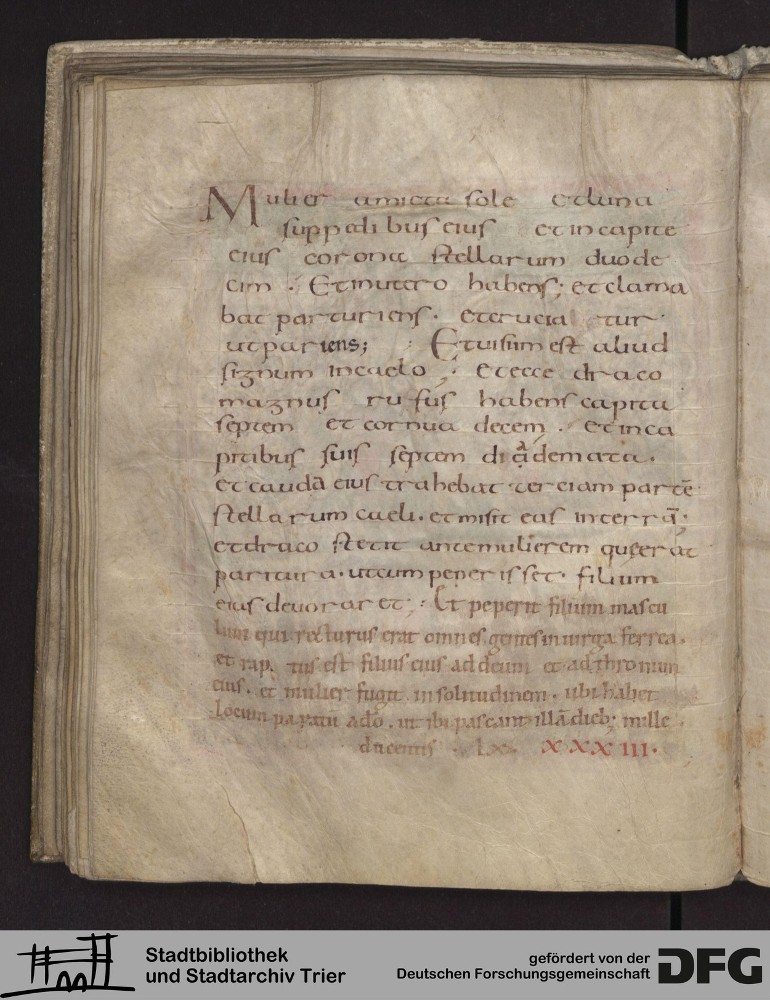 Mulier amicta sole et luna
sup pedibus eius et in capite
eius corona stellarum duode
cim . Et in utero habens; et clama
bat parturiens . et crucia tur
ut pariens; : Et uisum est aliud
signum in caelo ; Et ecce draco
magnus rufus habens capita
septem et cornua decem . et in ca
pitibus suis septem diademata .
et cauda eius trahebat terciam partē
stellarum caeli . et misit eas in terrā;
et draco stetit ante mulierem quę erat
paritura . ut cum peperisset . filium
eius deuoraret; : Et peperit filium mascu
lum qui recturus erat omnes gentes in uirga ferrea .
et rap tus est filius eius ad deum et ad thronum
eius . et mulier fugit in solitudinem . ubi habet
locum paratū a dō . ut ibi pascant illā dieb; mille .
ducentis . lx . XXXIII .
Stadtbibliothek
und Stadtarchiv Trier
gefördert von der
Deutschen Forschungsgemeinschaft
DFG